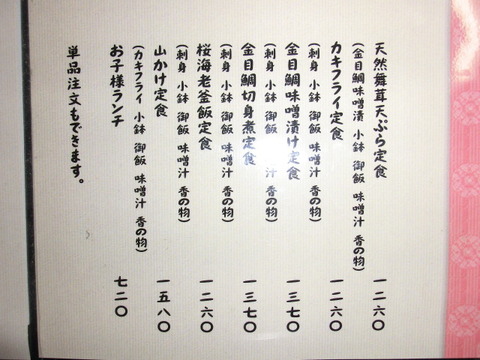 天然舞茸天ぷら定食 一二六〇
(金目鯛味噌漬 小鉢 御飯 味噌汁 香の物)
カキフライ定食 一二六〇
(刺身 小鉢 御飯 味噌汁 香の物)
金目鯛味噌漬け定食 一三七〇
(刺身 小鉢 御飯 味噌汁 香の物)
金目鯛切身煮定食 一三七〇
(刺身 小鉢 御飯 味噌汁 香の物)
桜海老釜飯定食 一二六〇
(刺身 小鉢 味噌汁 香の物)
山かけ定食 一五八〇
(カキフライ 小鉢 御飯 味噌汁 香の物)
お子様ランチ 七二〇
単品注文もできます。